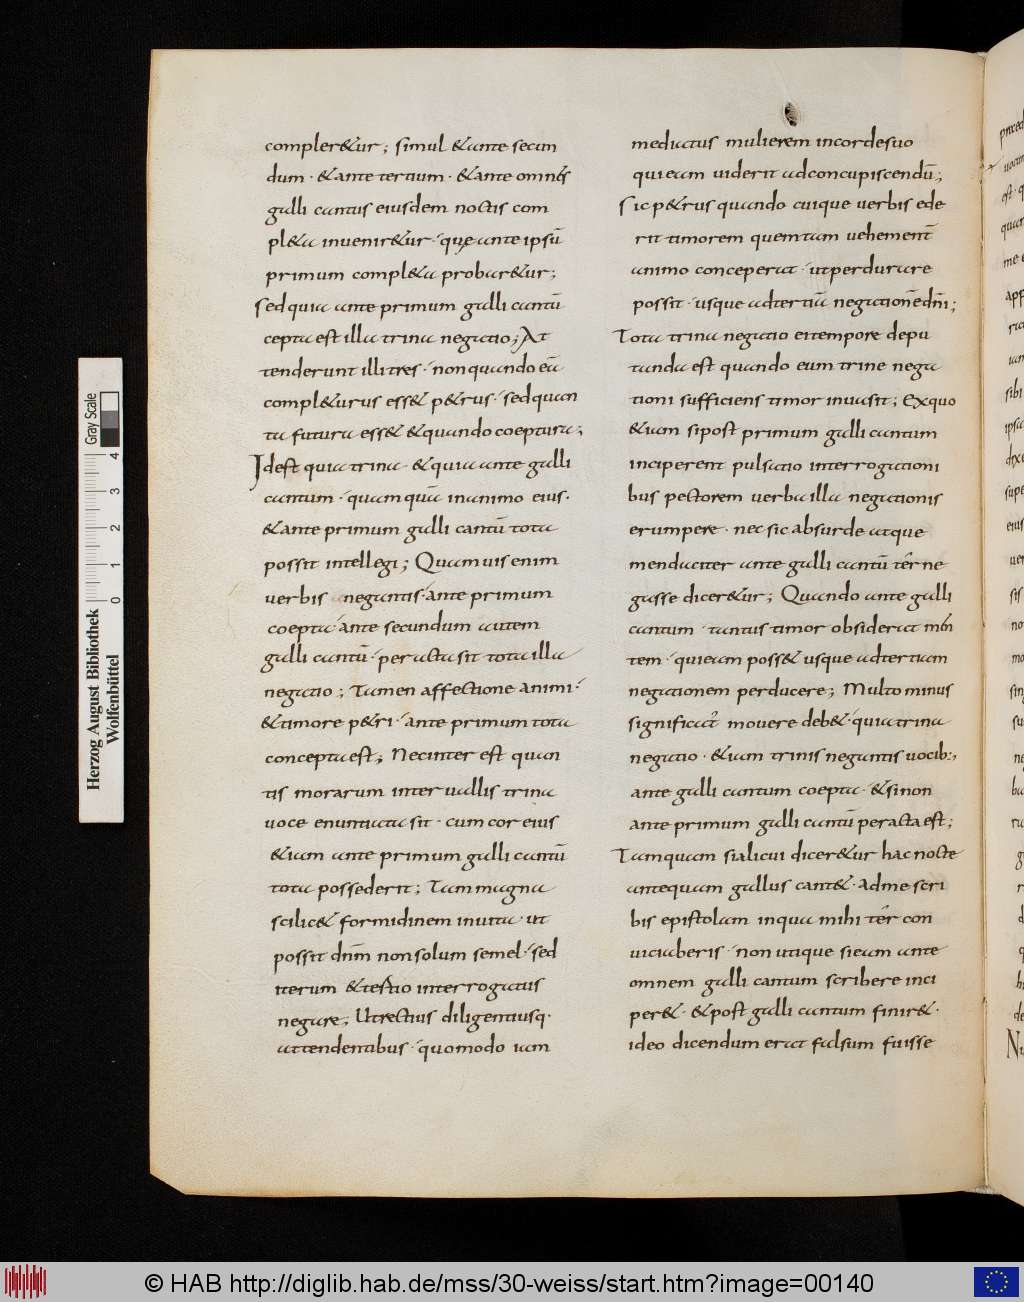 compler&ur; simul &ante secun
dum · &ante tertium · &ante omnes
galli cantus eiusdem noctis com
pl&a inuenir&ur · quae ante ipsū
primum compl&a probar&ur;
sed quia ante primum galli cantū
cepta est illa trina negatio; At
tenderunt illi tres · non quando eā
compl&urus ess& p&rus · sed quan
ta futura ess& &quando coeptura;
Idest quia trina · & quia ante galli
cantum · quam quā inanimo eius ·
&ante primum galli cantū tota
possit intellegi; Quamuis enim
uerbis negantis · ante primum
coepta · ante secundum autem
galli cantū · peracta sit tota illa
negatio; Tamen affectione animi ·
&timore p&ri · ante primum tota
concepta est; Nec inter est quan
tis morarum inter uallis trina
uoce enuntiata sit · cum cor eius
&iam ante primum galli cantū
tota possederit; Tam magna
scilic& formidinem inuita ut
possit dnm̄ non solum semel · sed
iterum &tertio interrogatus
negare; Ut rectius diligentiusq·
attendentibus · quomodo iam
mediatus mulierem incordesuo
quieam uiderit adconcupiscendū;
Sic p&rus quando cuique uerbis ede
rit timorem quemtam uehement̄
animo conceperat · utperdurare
possit · usque adtertiā negationē dn̄i;
Tota trina negatio eitempore depu
tanda est quando eum trine nega
tioni sufficiens timor inuasit; Exquo
&iam sipost primum galli cantum
inciperent pulsatio interrogationi
bus pectorem uerba illa negationis
erumpere · nec sic absurde atque
mendaciter ante galli cantū tēr ne
gasse dicer&ur; Quando ante galli
cantum · tantus timor obsiderat men
tem · quieam poss& usque adtertiam
negationem perducere; Multo minus
significat̄ mouere deb& · quia trina
negatio · &iam trinis negantis uocib:,
ante galli cantum coepta · &sinon
ante primum galli cantū peracta est;
Tamquam sialicui dicer&ur hac nocte
antequam gallus cant& · ad me scri
bis epistolam inqua mihi tēr con
uiciaberis · non utique sieam ante
omnem galli cantum scribere inci
per& · &post galli cantum finir& ·
ideo dicendum erat falsum fuisse
Herzog August Bibliothek
Wolfenbüttel
0 1 2 3 4
Gray Scale
© HAB http://diglib.hab.de/mss/30-weiss/start.htm?image=00140